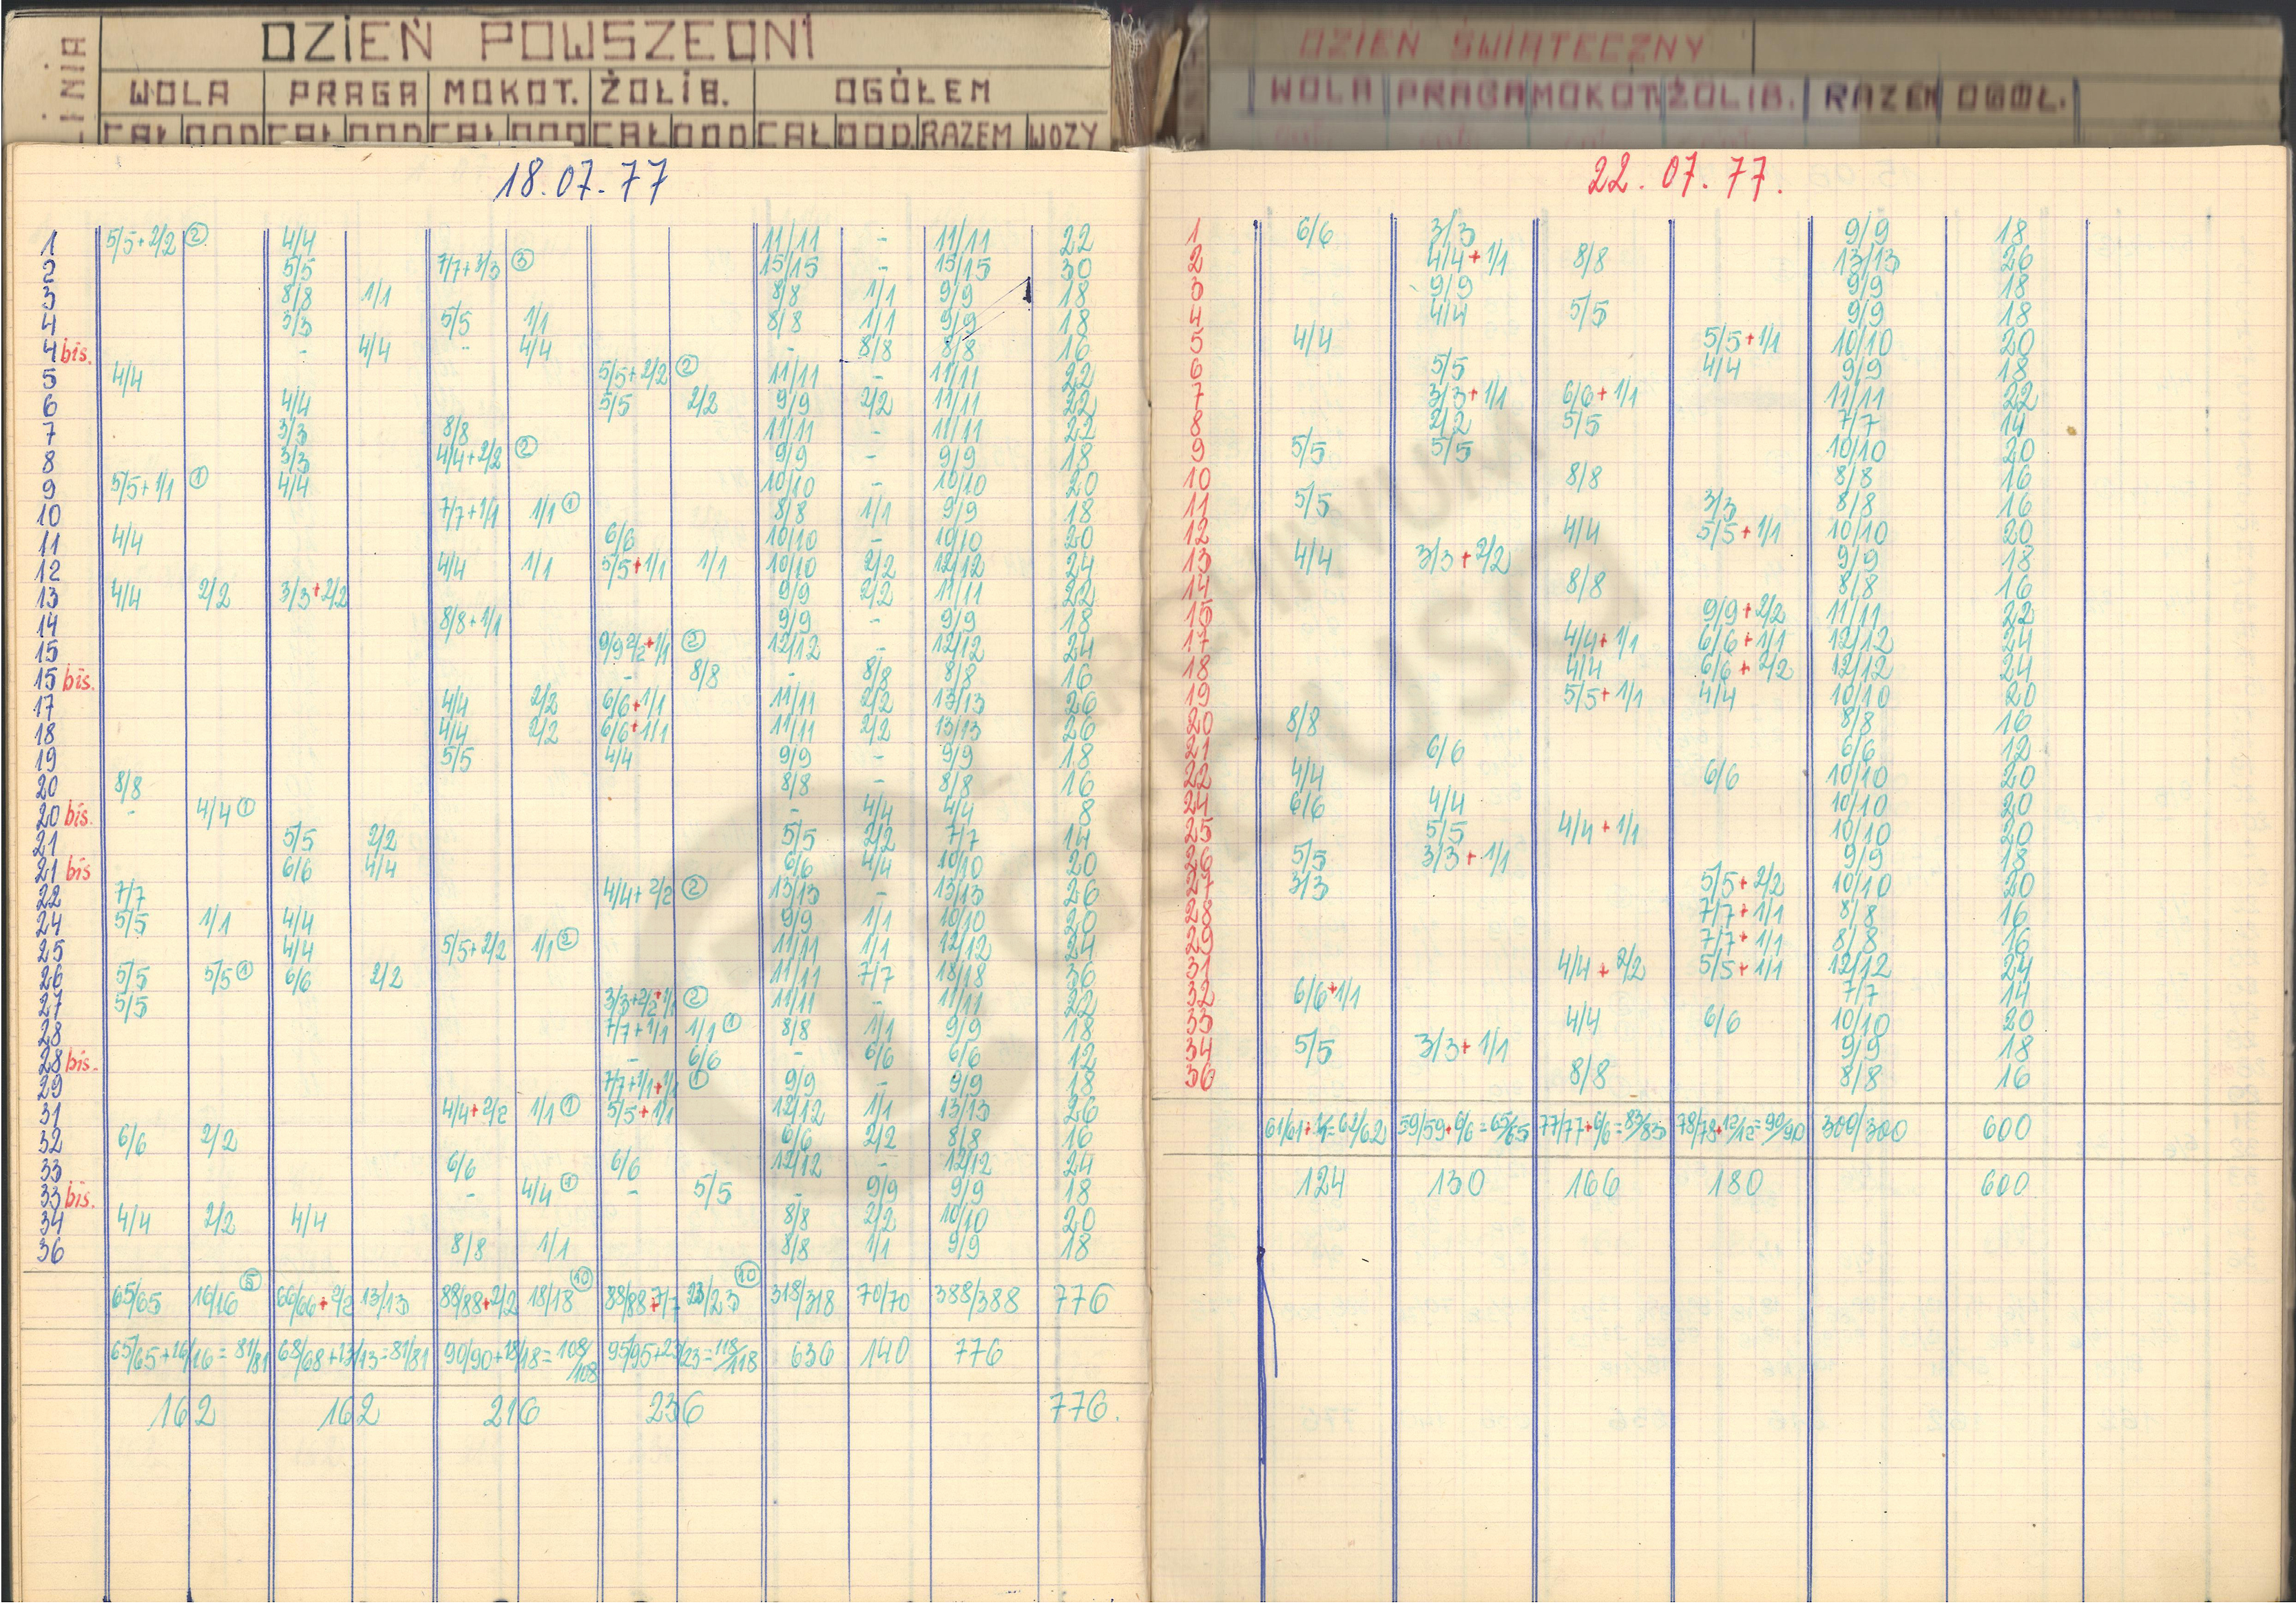 LINIA
DZIEŃ POWSZEDNI
WOLA PRAGA MOKOT. ŻOLIB. OGÓŁEM
CAŁ DOD CAŁ DOD CAŁ DOD CAŁ DOD CAŁ DOD. RAZEM WOZY
18.07.77
1 5/5+2/2 ② 4/4 11/11 - 11/11 22
2 5/5 7/7+3/3 ③ 15/15 - 15/15 30
3 8/8 1/1 8/8 1/1 9/9 18
4 3/3 5/5 1/1 8/8 1/1 9/9 18
4 bis. - 4/4 - 4/4 - 8/8 8/8 16
5 4/4 5/5+2/2 ② 11/11 - 11/11 22
6 4/4 5/5 2/2 9/9 2/2 11/11 22
7 3/3 8/8 11/11 - 11/11 22
8 3/3 4/4+2/2 ② 9/9 - 9/9 18
9 5/5+1/1 ① 4/4 10/10 - 10/10 20
10 7/7+1/1 1/1 ① 8/8 1/1 9/9 18
11 4/4 6/6 10/10 - 10/10 20
12 4/4 1/1 5/5+1/1 1/1 10/10 2/2 12/12 24
13 4/4 2/2 3/3+2/2 9/9 2/2 11/11 22
14 8/8+1/1 9/9 - 9/9 18
15 9/9 2/2+1/1 ② 12/12 - 12/12 24
15 bis. - 8/8 - 8/8 8/8 16
17 4/4 2/2 6/6+1/1 11/11 2/2 13/13 26
18 4/4 2/2 6/6+1/1 11/11 2/2 13/13 26
19 5/5 4/4 9/9 - 9/9 18
20 8/8 8/8 - 8/8 16
20 bis. - 4/4 ① - 4/4 4/4 8
21 5/5 2/2 5/5 2/2 7/7 14
21 bis 6/6 4/4 6/6 4/4 10/10 20
22 7/7 4/4+2/2 ② 13/13 - 13/13 26
24 5/5 1/1 4/4 9/9 1/1 10/10 20
25 4/4 5/5+2/2 1/1 ② 11/11 1/1 12/12 24
26 5/5 5/5 ① 6/6 2/2 11/11 7/7 18/18 36
27 5/5 3/3+2/2+1/1 ② 11/11 - 11/11 22
28 7/7+1/1 1/1 ① 8/8 1/1 9/9 18
28 bis. - 6/6 - 6/6 6/6 12
29 7/7+1/1+1/1 ① 9/9 - 9/9 18
31 4/4+2/2 1/1 ① 5/5+1/1 12/12 1/1 13/13 26
32 6/6 2/2 6/6 2/2 8/8 16
33 6/6 6/6 12/12 - 12/12 24
33 bis. - 4/4 ① - 5/5 - 9/9 9/9 18
34 4/4 2/2 4/4 8/8 2/2 10/10 20
36 8/8 1/1 8/8 1/1 9/9 18
65/65 16/16 ⑤ 66/66+2/2 13/13 88/88+2/2 18/18 ⑩ 88/88+7/7 23/23 ⑩ 318/318 70/70 388/388 776
65/65+16/16=81/81 68/68+13/13=81/81 90/90+18/18=108/108 95/95+23/23=118/118 636 140 776
162 162 216 236 776.
DZIEŃ ŚWIĄTECZNY
WOLA PRAGA MOKOT. ŻOLIB. RAZEM OGÓŁ.
22.07.77.
1 6/6 3/3 9/9 18
2 4/4+1/1 8/8 13/13 26
3 9/9 9/9 18
4 4/4 5/5 9/9 18
5 4/4 5/5+1/1 10/10 20
6 5/5 4/4 9/9 18
7 3/3+1/1 6/6+1/1 11/11 22
8 2/2 5/5 7/7 14
9 5/5 5/5 10/10 20
10 8/8 8/8 16
11 5/5 3/3 8/8 16
12 4/4 5/5+1/1 10/10 20
13 4/4 3/3+2/2 9/9 18
14 8/8 8/8 16
15 9/9+2/2 11/11 22
17 4/4+1/1 6/6+1/1 12/12 24
18 4/4 6/6+2/2 12/12 24
19 5/5+1/1 4/4 10/10 20
20 8/8 8/8 16
21 6/6 6/6 12
22 4/4 6/6 10/10 20
24 6/6 4/4 10/10 20
25 5/5 4/4+1/1 10/10 20
26 5/5 3/3+1/1 9/9 18
27 3/3 5/5+2/2 10/10 20
28 7/7+1/1 8/8 16
29 7/7+1/1 8/8 16
31 4/4+2/2 5/5+1/1 12/12 24
32 6/6+1/1 7/7 14
33 4/4 6/6 10/10 20
34 5/5 3/3+1/1 9/9 18
36 8/8 8/8 16
61/61+1/1=62/62 59/59+6/6=65/65 77/77+6/6=83/83 78/78+12/12=90/90 300/300 600
124 130 166 180 600
ARCHIWUM